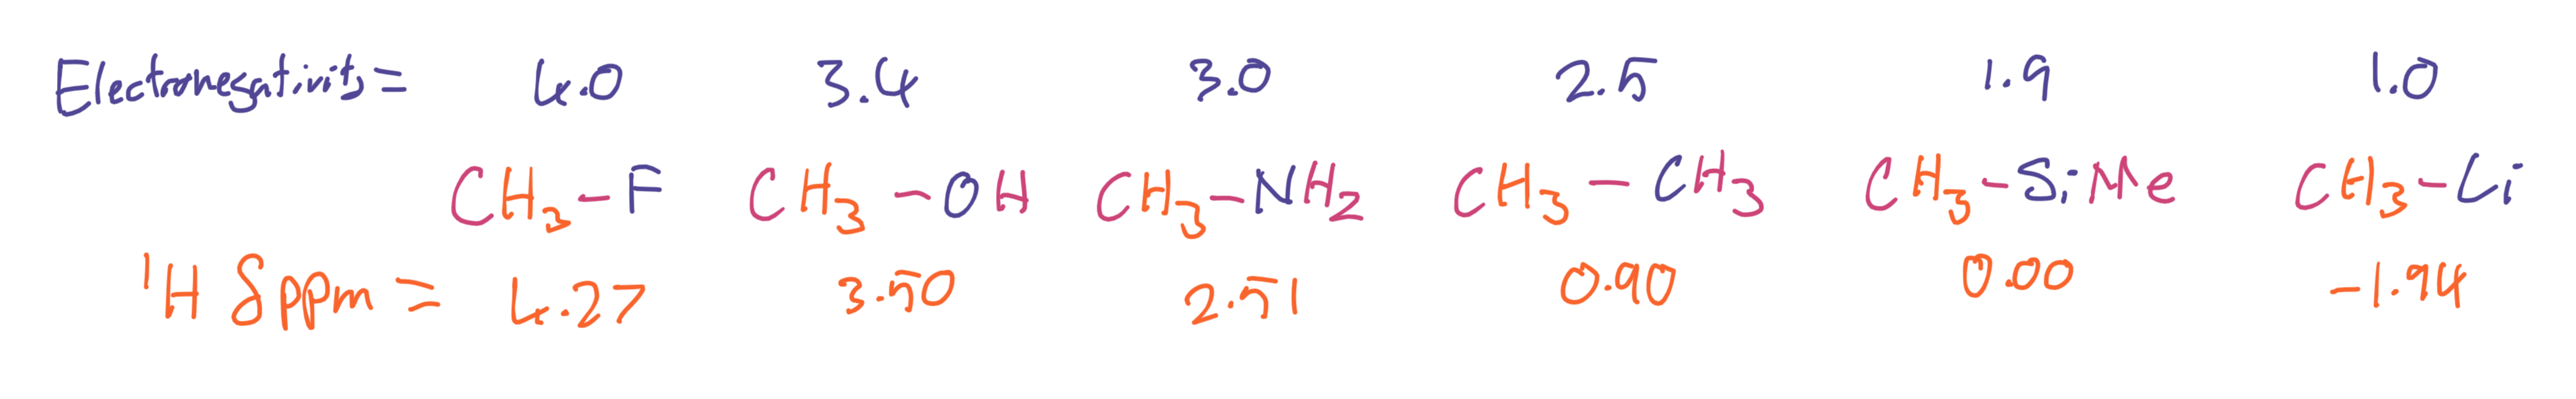 Electronegativity = 4.0 3.4 3.0 2.5 1.9 1.0
CH3-F CH3-OH CH3-NH2 CH3-CH3 CH3-SiMe CH3-Li
1H δppm = 4.27 3.50 2.51 0.90 0.00 -1.94